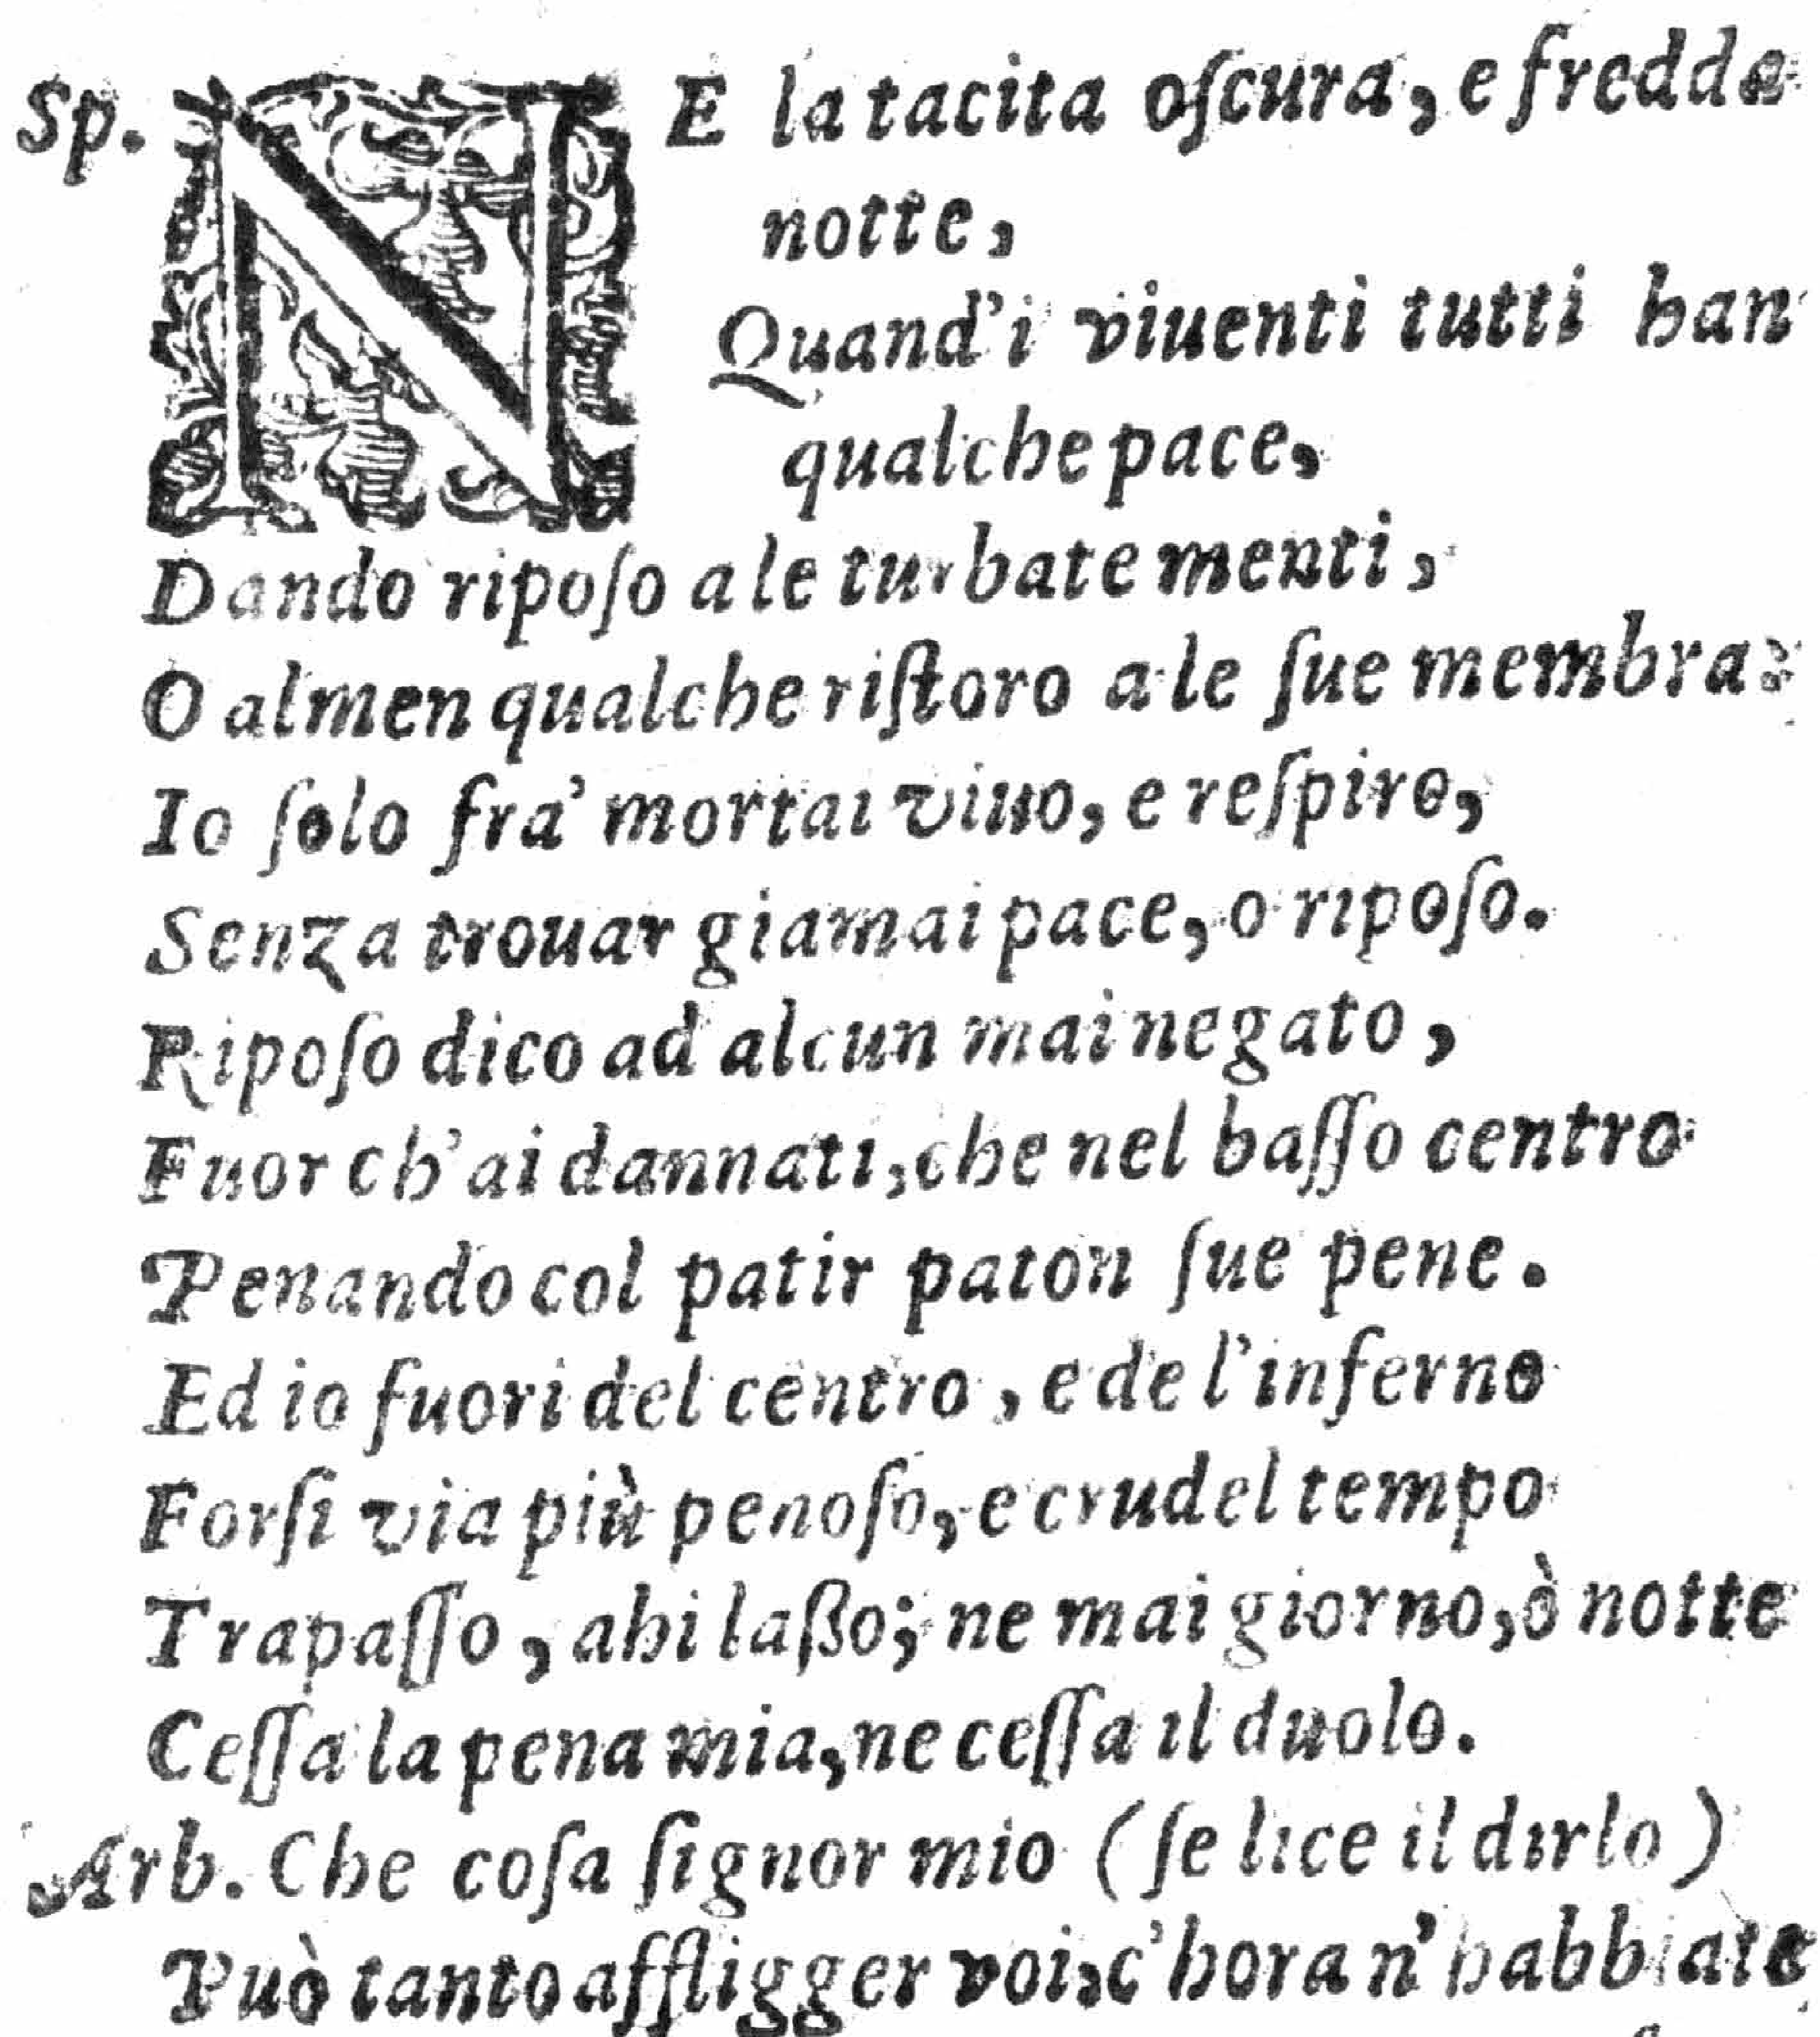 Sp. NE la tacita oſcura, e fredda
notte,
Quand'i viuenti tutti han
qualche pace,
Dando ripoſo a le turbate menti,
O almen qualche riſtoro a le ſue membra:
Io ſolo fra' mortai viuo, e reſpiro,
Senza trouar giamai pace, o ripoſo.
Ripoſo dico ad alcun mai negato,
Fuor ch'ai dannati, che nel baſſo centro
Penando col patir paton ſue pene.
Ed io fuori del centro, e de l'inferno
Forſi via più penoſo, e crudel tempo
Trapaſſo, ahi laßo; ne mai giorno, ò notte
Ceſſa la pena mia, ne ceſſa il duolo.
Arb. Che coſa ſignor mio (ſe lice il dirlo)
Può tanto affligger voi, c'hora n'habbiate